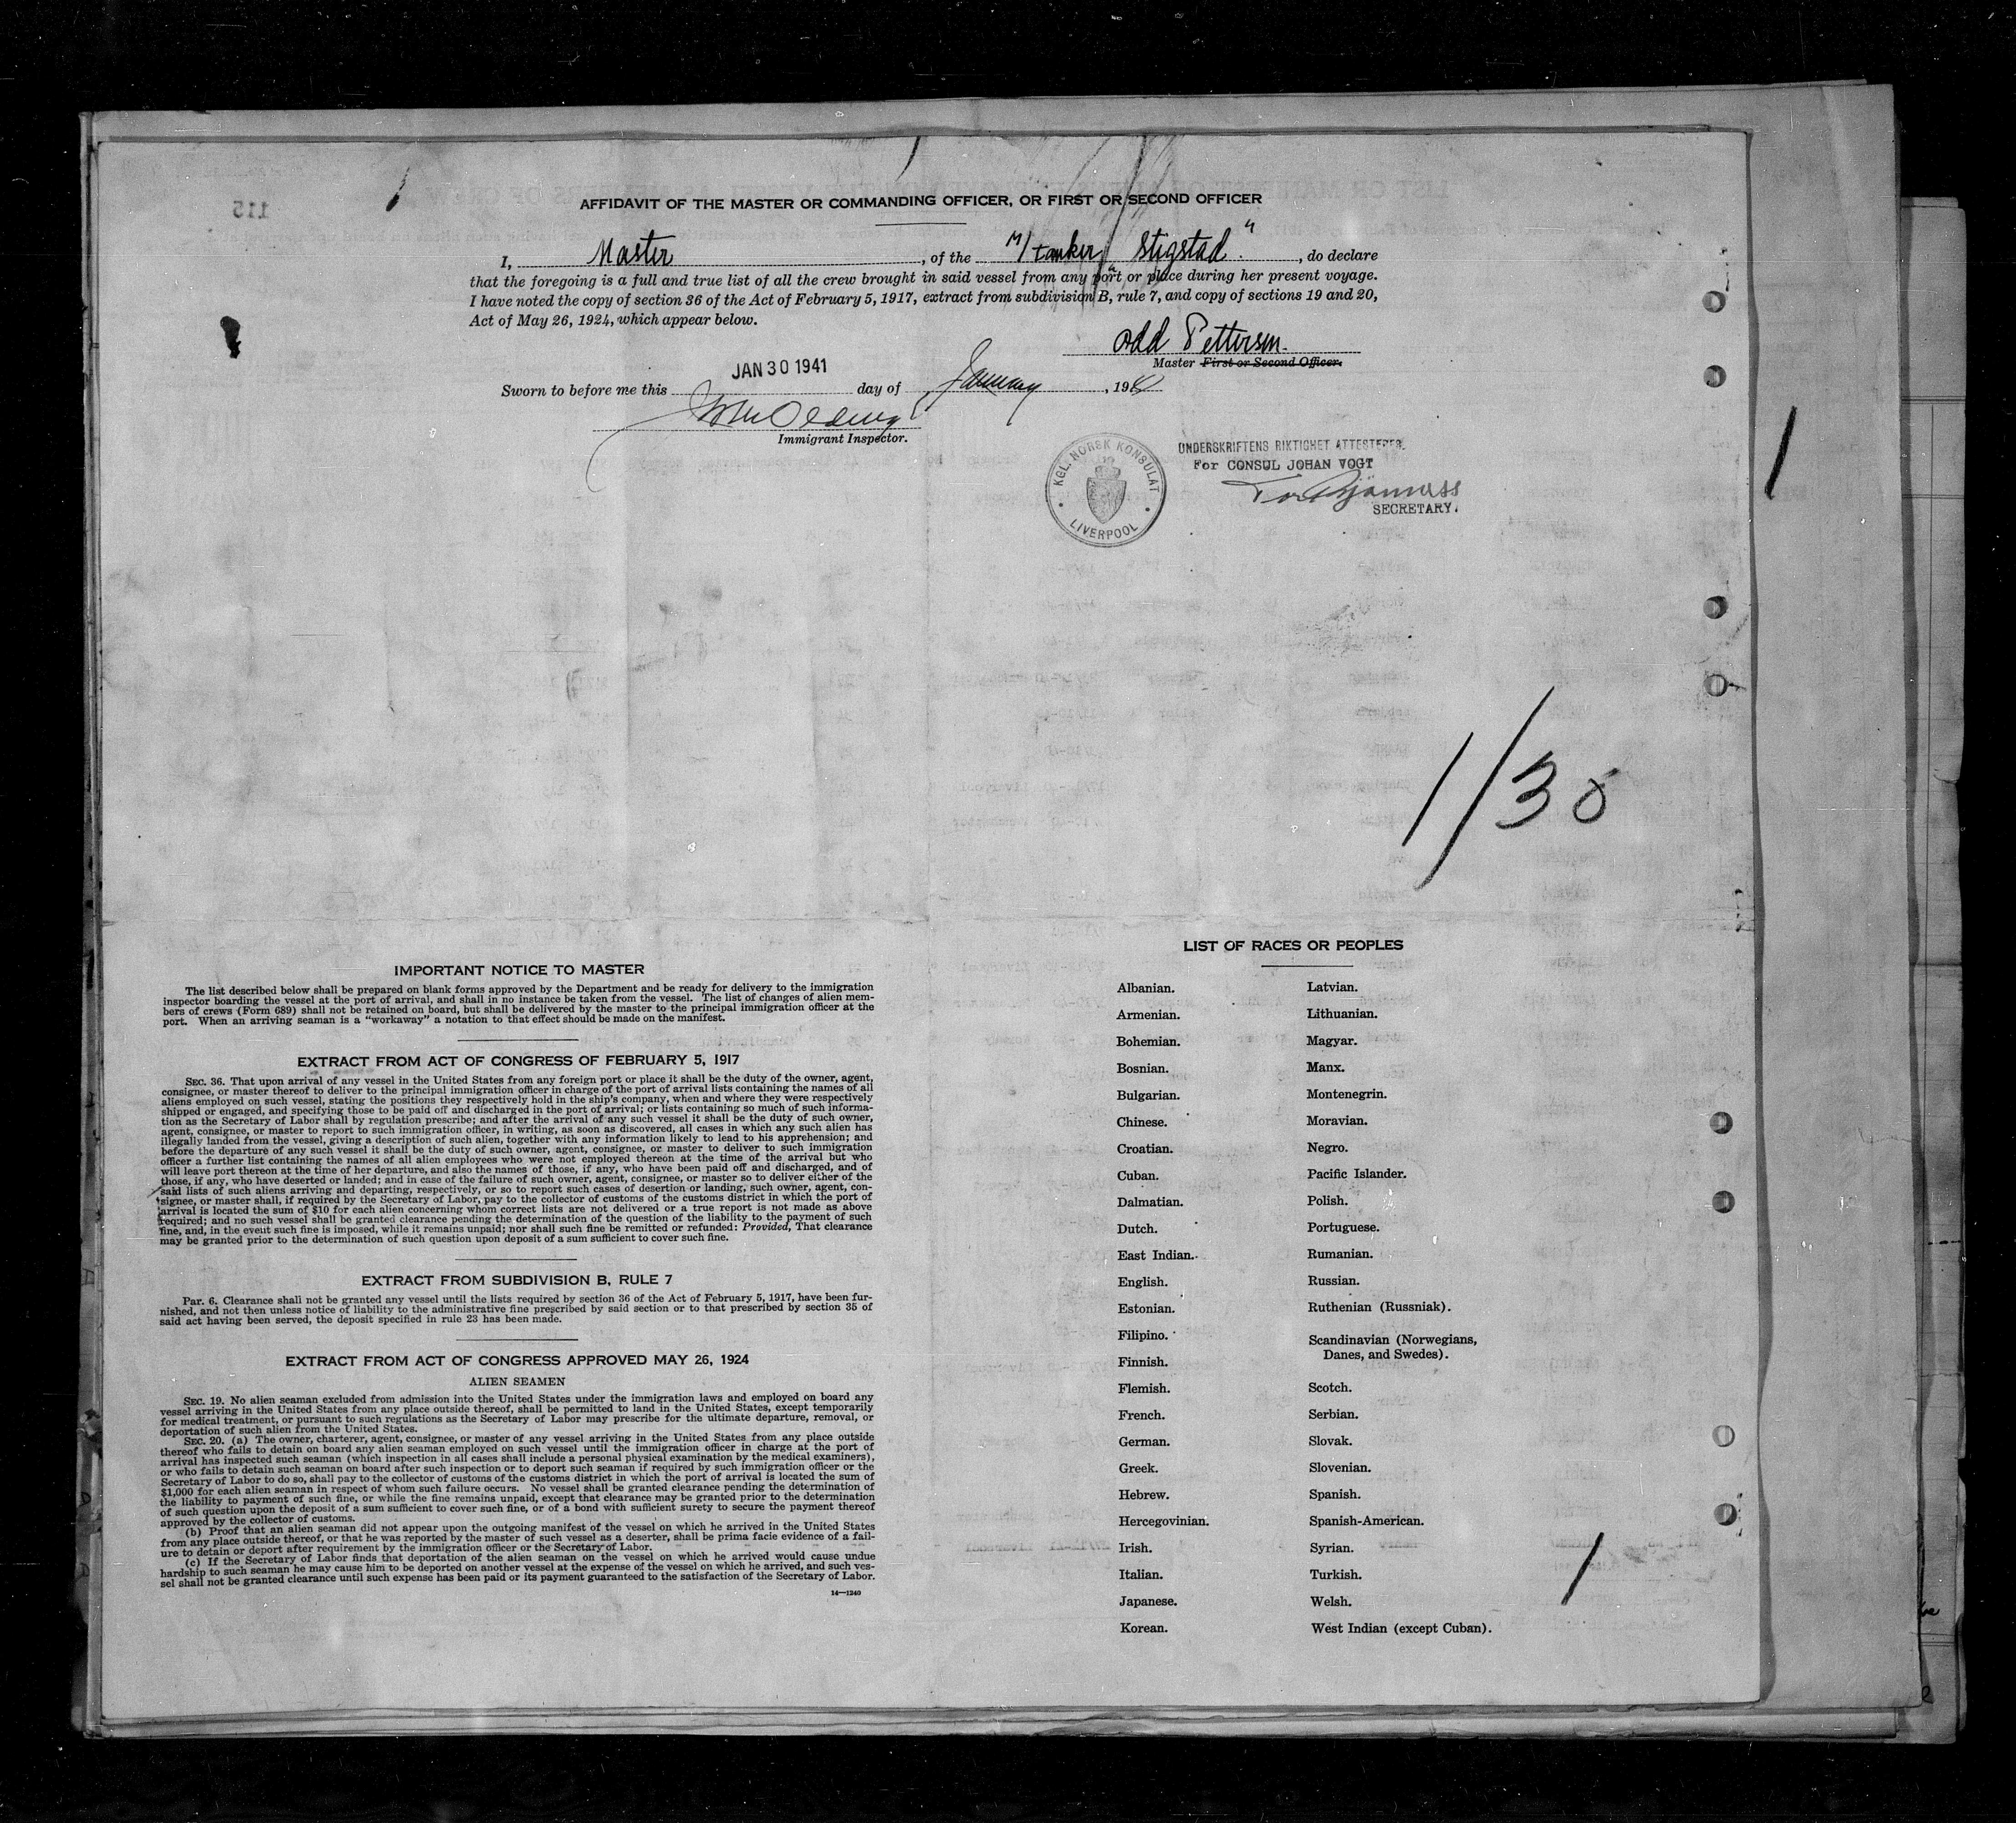 115
AFFIDAVIT OF THE MASTER OR COMMANDING OFFICER, OR FIRST OR SECOND OFFICER
I, Master, of the M/Tanker "Stigstad.", do declare
that the foregoing is a full and true list of all the crew brought in said vessel from any port or place during her present voyage.
I have noted the copy of section 36 of the Act of February 5, 1917, extract from subdivision B, rule 7, and copy of sections 19 and 20,
Act of May 26, 1924, which appear below.
Odd Pettersen.
Master First or Second Officer.
JAN 30 1941
Sworn to before me this day of January, 194
Immigrant Inspector.
KGL. NORSK KONSULAT
LIVERPOOL
UNDERSKRIFTENS RIKTIGHET ATTESTERES.
For CONSUL JOHAN VOGT
SECRETARY.
1
1/30
IMPORTANT NOTICE TO MASTER
The list described below shall be prepared on blank forms approved by the Department and be ready for delivery to the immigration
inspector boarding the vessel at the port of arrival, and shall in no instance be taken from the vessel. The list of changes of alien mem-
bers of crews (Form 689) shall not be retained on board, but shall be delivered by the master to the principal immigration officer at the
port. When an arriving seaman is a "workaway" a notation to that effect should be made on the manifest.
EXTRACT FROM ACT OF CONGRESS OF FEBRUARY 5, 1917
SEC. 36. That upon arrival of any vessel in the United States from any foreign port or place it shall be the duty of the owner, agent,
consignee, or master thereof to deliver to the principal immigration officer in charge of the port of arrival lists containing the names of all
aliens employed on such vessel, stating the positions they respectively hold in the ship's company, when and where they were respectively
shipped or engaged, and specifying those to be paid off and discharged in the port of arrival; or lists containing so much of such informa-
tion as the Secretary of Labor shall by regulation prescribe; and after the arrival of any such vessel it shall be the duty of such owner,
agent, consignee, or master to report to such immigration officer, in writing, as soon as discovered, all cases in which any such alien has
illegally landed from the vessel, giving a description of such alien, together with any information likely to lead to his apprehension; and
before the departure of any such vessel it shall be the duty of such owner, agent, consignee, or master to deliver to such immigration
officer a further list containing the names of all alien employees who were not employed thereon at the time of the arrival but who
will leave port thereon at the time of her departure, and also the names of those, if any, who have been paid off and discharged, and of
those, if any, who have deserted or landed; and in case of the failure of such owner, agent, consignee, or master so to deliver either of the
said lists of such aliens arriving and departing, respectively, or so to report such cases of desertion or landing, such owner, agent, con-
signee, or master shall, if required by the Secretary of Labor, pay to the collector of customs of the customs district in which the port of
arrival is located the sum of $10 for each alien concerning whom correct lists are not delivered or a true report is not made as above
required; and no such vessel shall be granted clearance pending the determination of the question of the liability to the payment of such
fine, and, in the event such fine is imposed, while it remains unpaid; nor shall such fine be remitted or refunded: Provided, That clearance
may be granted prior to the determination of such question upon deposit of a sum sufficient to cover such fine.
EXTRACT FROM SUBDIVISION B, RULE 7
Par. 6. Clearance shall not be granted any vessel until the lists required by section 36 of the Act of February 5, 1917, have been fur-
nished, and not then unless notice of liability to the administrative fine prescribed by said section or to that prescribed by section 35 of
said act having been served, the deposit specified in rule 23 has been made.
EXTRACT FROM ACT OF CONGRESS APPROVED MAY 26, 1924
ALIEN SEAMEN
SEC. 19. No alien seaman excluded from admission into the United States under the immigration laws and employed on board any
vessel arriving in the United States from any place outside thereof, shall be permitted to land in the United States, except temporarily
for medical treatment, or pursuant to such regulations as the Secretary of Labor may prescribe for the ultimate departure, removal, or
deportation of such alien from the United States.
SEC. 20. (a) The owner, charterer, agent, consignee, or master of any vessel arriving in the United States from any place outside
thereof who fails to detain on board any alien seaman employed on such vessel until the immigration officer in charge at the port of
arrival has inspected such seaman (which inspection in all cases shall include a personal physical examination by the medical examiners),
or who fails to detain such seaman on board after such inspection or to deport such seaman if required by such immigration officer or the
Secretary of Labor to do so, shall pay to the collector of customs of the customs district in which the port of arrival is located the sum of
$1,000 for each alien seaman in respect of whom such failure occurs. No vessel shall be granted clearance pending the determination of
the liability to payment of such fine, or while the fine remains unpaid, except that clearance may be granted prior to the determination
of such question upon the deposit of a sum sufficient to cover such fine, or of a bond with sufficient surety to secure the payment thereof
approved by the collector of customs.
(b) Proof that an alien seaman did not appear upon the outgoing manifest of the vessel on which he arrived in the United States
from any place outside thereof, or that he was reported by the master of such vessel as a deserter, shall be prima facie evidence of a fail-
ure to detain or deport after requirement by the immigration officer or the Secretary of Labor.
(c) If the Secretary of Labor finds that deportation of the alien seaman on the vessel on which he arrived would cause undue
hardship to such seaman he may cause him to be deported on another vessel at the expense of the vessel on which he arrived, and such ves-
sel shall not be granted clearance until such expense has been paid or its payment guaranteed to the satisfaction of the Secretary of Labor.
14—1240
LIST OF RACES OR PEOPLES
Albanian.
Armenian.
Bohemian.
Bosnian.
Bulgarian.
Chinese.
Croatian.
Cuban.
Dalmatian.
Dutch.
East Indian.
English.
Estonian.
Filipino.
Finnish.
Flemish.
French.
German.
Greek.
Hebrew.
Hercegovinian.
Irish.
Italian.
Japanese.
Korean.
Latvian.
Lithuanian.
Magyar.
Manx.
Montenegrin.
Moravian.
Negro.
Pacific Islander.
Polish.
Portuguese.
Rumanian.
Russian.
Ruthenian (Russniak).
Scandinavian (Norwegians,
Danes, and Swedes).
Scotch.
Serbian.
Slovak.
Slovenian.
Spanish.
Spanish-American.
Syrian.
Turkish.
Welsh.
West Indian (except Cuban).